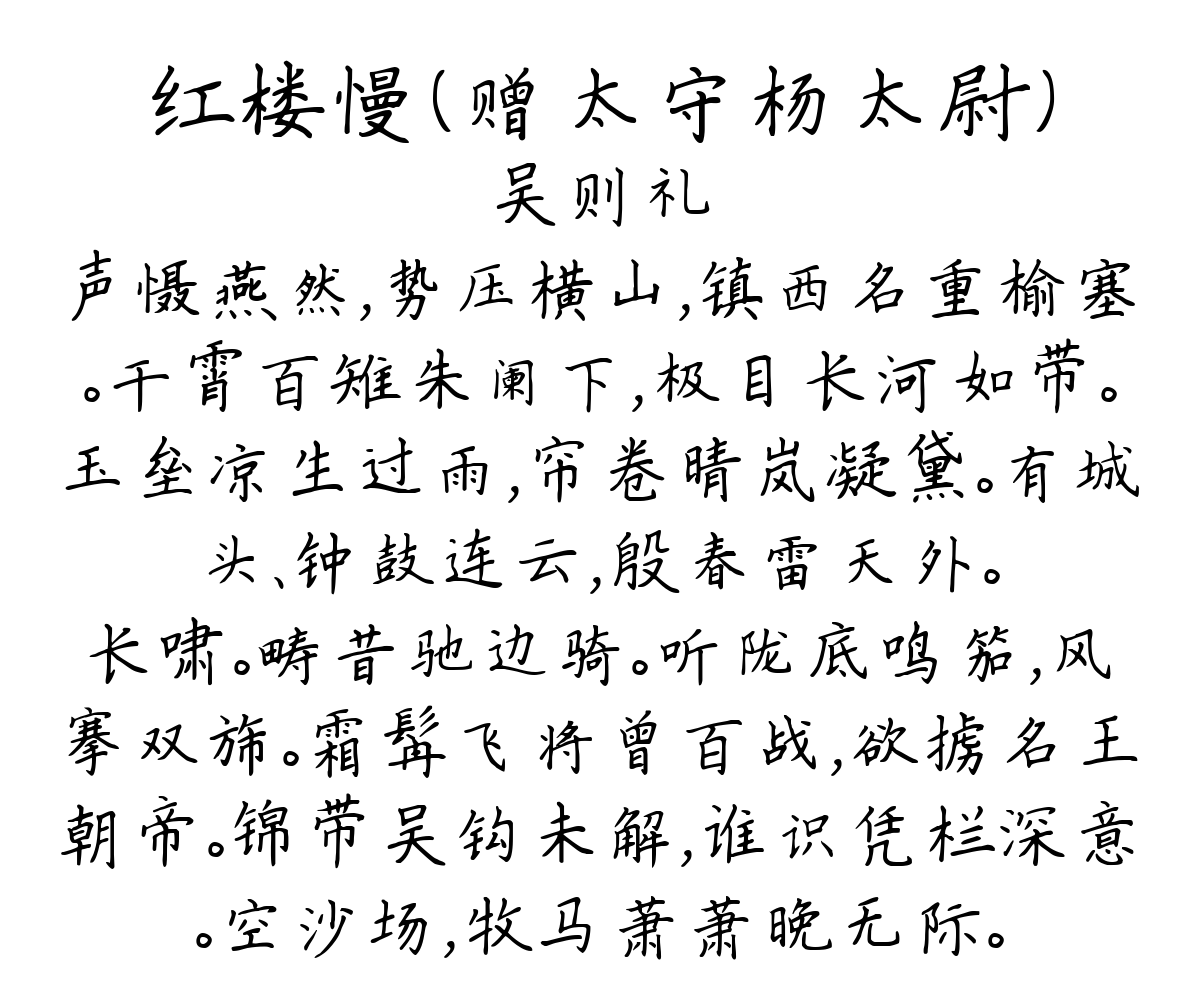 红楼慢(赠太守杨太尉)
吴则礼
声慑燕然,势压横山,镇西名重榆塞
。干霄百雉朱阑下,极目长河如带。
玉垒凉生过雨,帘卷晴岚凝黛。有城
头、钟鼓连云,殷春雷天外。
长啸。畴昔驰边骑。听陇底鸣笳,风
搴双旆。霜髯飞将曾百战,欲掳名王
朝帝。锦带吴钩未解,谁识凭栏深意
。空沙场,牧马萧萧晚无际。